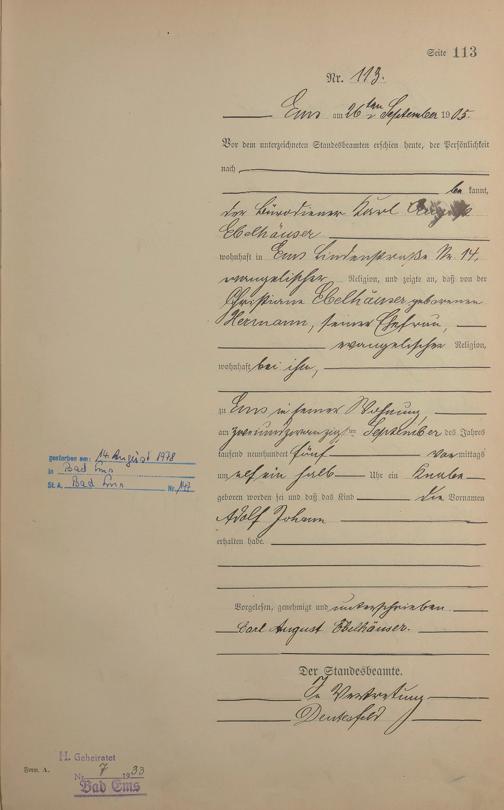 Seite 113
Nr. 113.
Ems am 26ten September 1905.
Vor dem unterzeichneten Standesbeamten erschien heute, der Persönlichkeit
nach
be kannt,
der Bürodiener Karl August
Ebelhäuser
wohnhaft in Ems Lindenstraße Nr. 14,
evangelischer Religion, und zeigte an, daß von der
Christiane Ebelhäuser geborenen
Hermann, seiner Ehefrau,
evangelischer Religion,
wohnhaft bei ihm,
zu Ems in seiner Wohnung
am zweiundzwanzigsten September des Jahres
tausend neunhundert fünf vor mittags
um elf ein halb Uhr ein Knabe
geboren worden sei und daß das Kind die Vornamen
Adolf Johann
erhalten habe.
Vorgelesen, genehmigt und unterschrieben.
Carl August Ebelhäuser.
Der Standesbeamte.
In Vertretung
gestorben am: 14. August 1978
in Bad Ems
St. A. Bad Ems Nr.
H. Geheiratet
Nr. 7 1933
Bad Ems
Form. A.